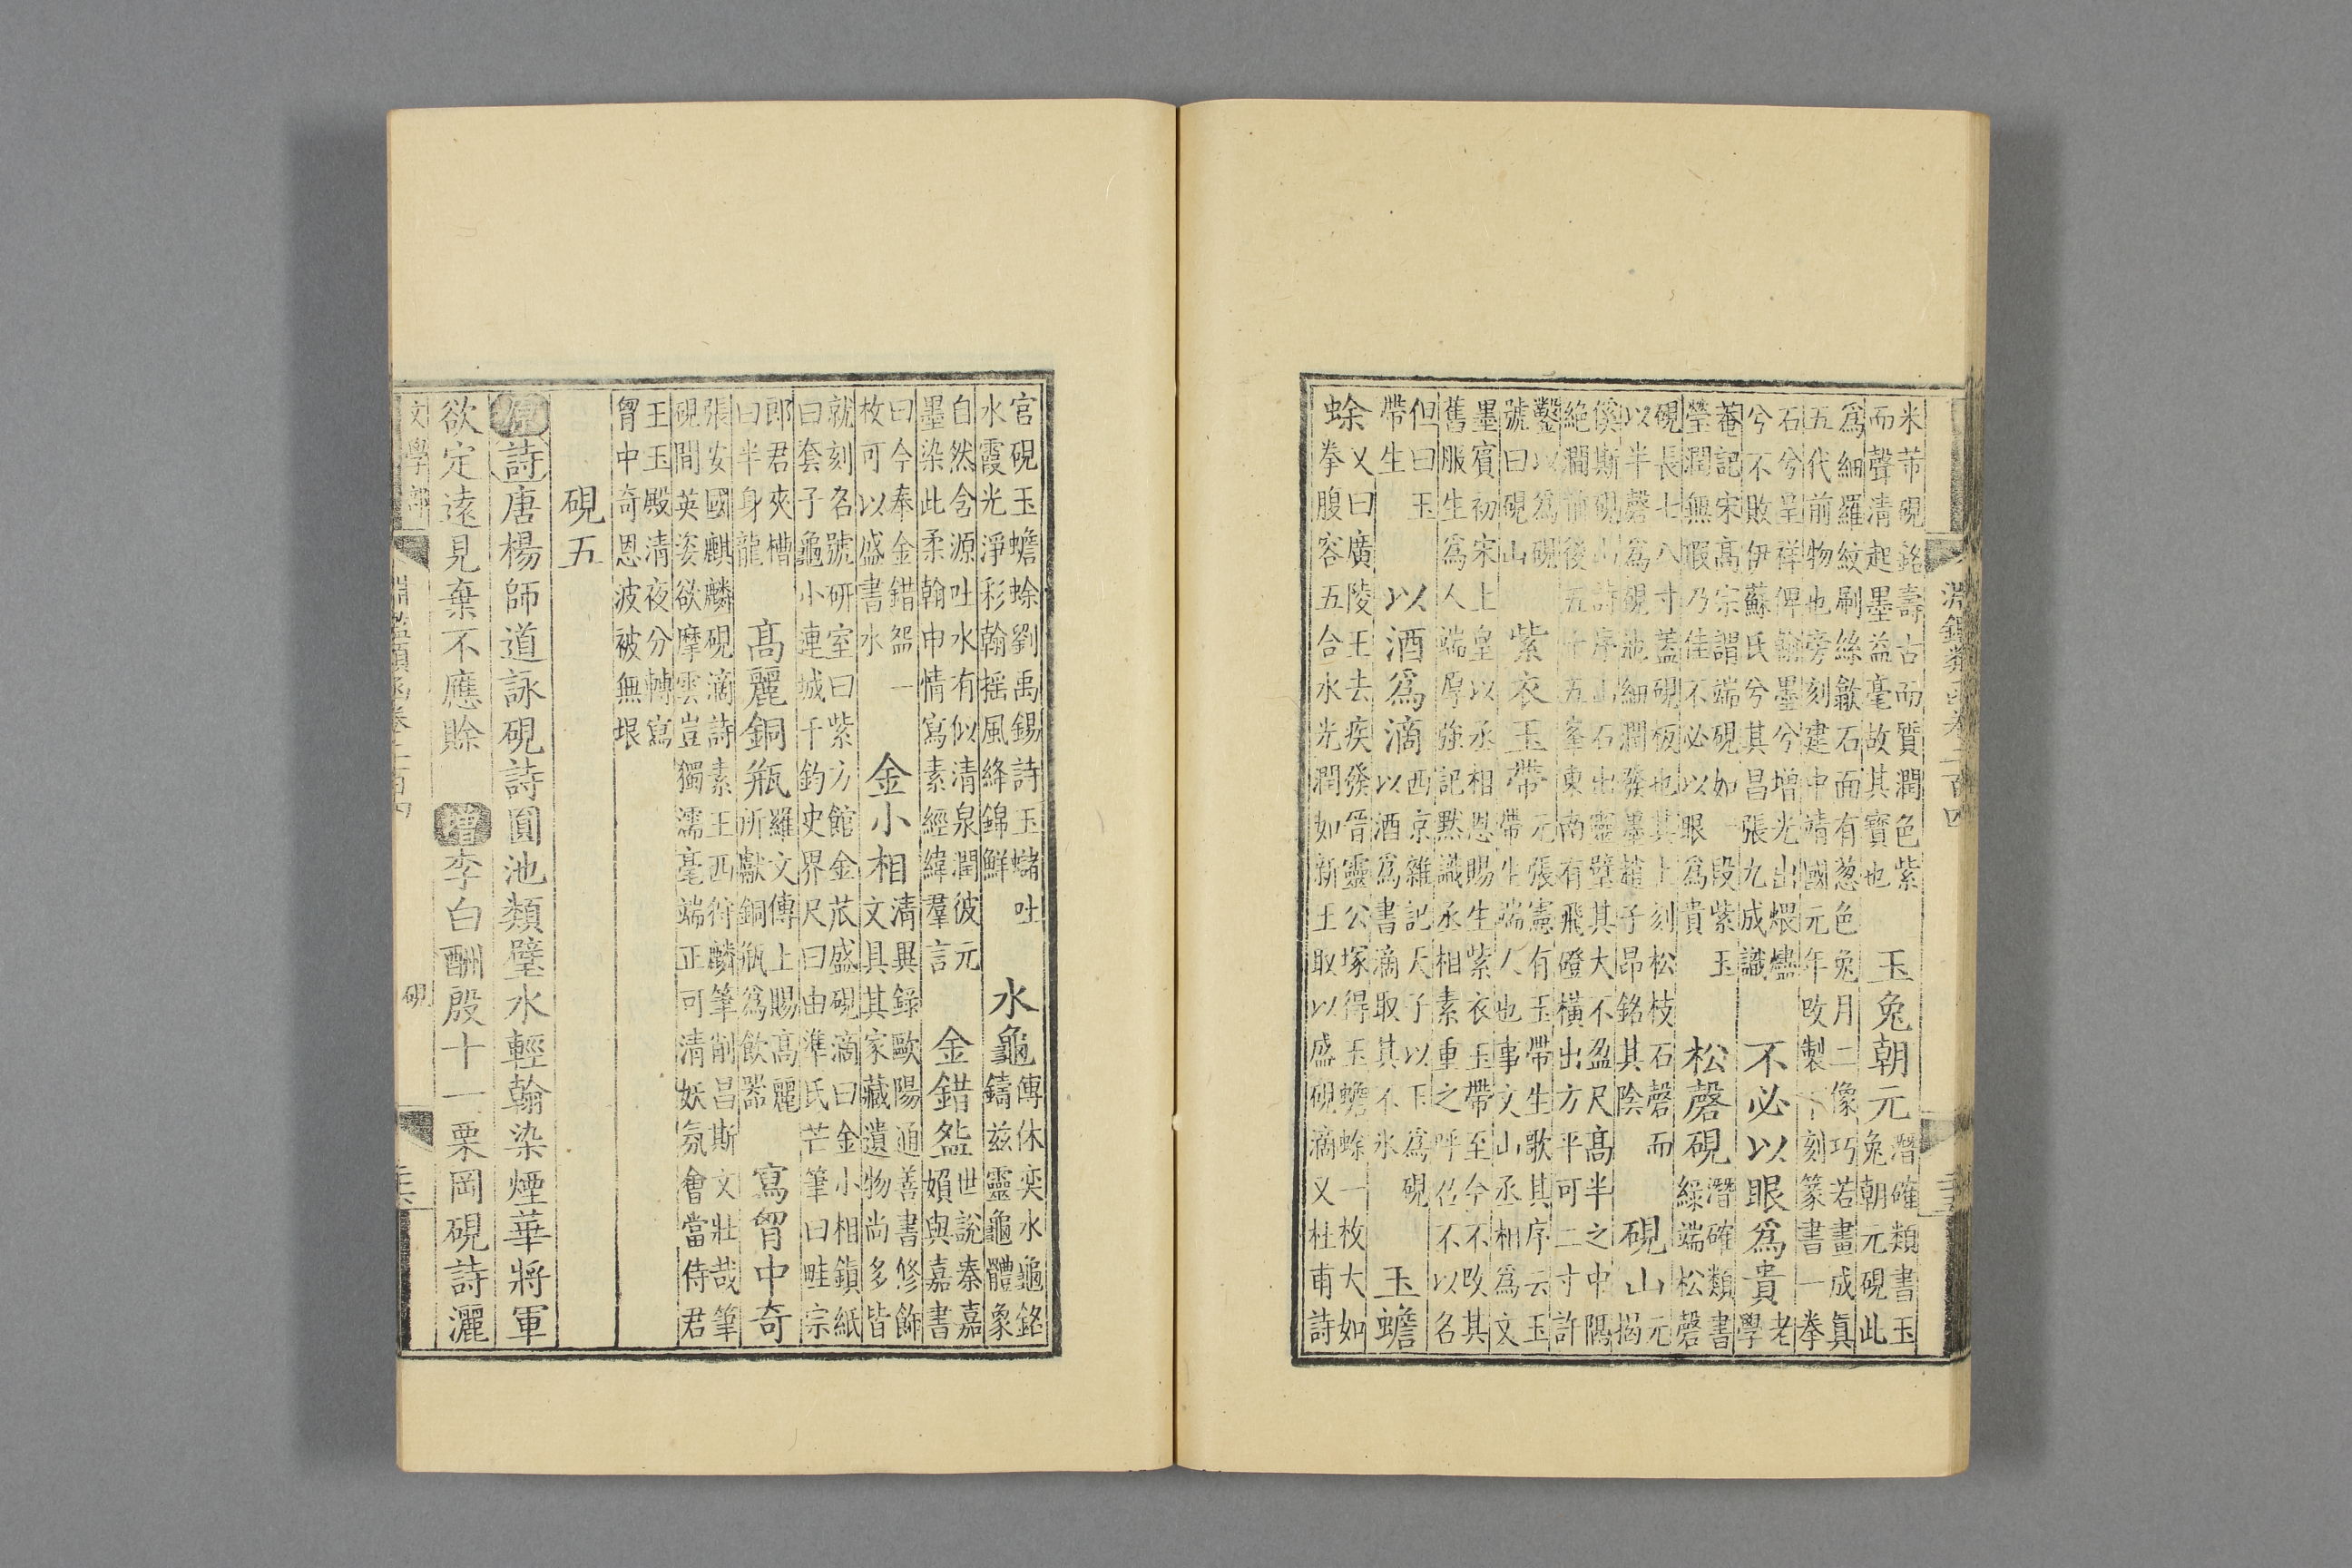 淵鑑類函卷二百四
米芾硯銘壽古而質潤色紫
而聲清起墨益毫故其寶也
玉兔朝元
潛確類書玉
兔朝元硯此
爲細羅紋刷絲歙石面有葱色兔月二像巧若畫成眞
五代前物也旁刻建中靖國元年改製下刻篆書一拳
石兮呈祥俾翰墨兮增光出煨燼
兮不敗伊蘇氏兮其昌張九成識
不必以眼爲貴
老
學
菴記宋高宗謂端硯如一段紫玉
瑩潤無瑕乃佳不必以眼爲貴
松磬硯
潛確類書
綠端松磬
硯長七八寸蓋硯板也其上刻松枝石磬而
以半磬爲硯池細潤發墨趙子昂銘其陰
硯山
元
揭
傒斯硯山詩序山石出靈璧其大不盈尺高半之中隅
絶澗前後五十五峯東南有飛磴橫出方平可二寸許
鑿以爲硯
號曰硯山
紫衣玉帶
元張憲有玉帶生歌其序云玉
帶生端人也事文山丞相爲文
墨賓初宋上皇以丞相恩賜生紫衣玉帶至今不改其
舊服生爲人端厚強記默識丞相素重之呼召不以名
但曰玉
帶生
以酒爲滴
西京雜記天子以玉爲硯
以酒爲書滴取其不氷
玉蟾
蜍
又曰廣陵王去疾發晉靈公塚得玉蟾蜍一枚大如
拳腹容五合水光潤如新王取以盛硯滴又杜甫詩
官硯玉蟾蜍劉禹錫詩玉蜍吐
水霞光淨彩翰揺風絳錦鮮
水龜
傅休奕水龜銘
鑄兹靈龜體象
自然含源吐水有似清泉潤彼元
墨染此柔翰申情寫素經緯羣言
金錯盌
世說秦嘉
嬪與嘉書
曰今奉金錯盌一
枚可以盛書水
金小相
清異錄歐陽通善書修飾
文具其家藏遺物尚多皆
就刻名號研室曰紫方館金苽盛硯滴曰金小相鎮紙
曰套子龜小連城千鈞史界尺曰由準氏芒筆曰畦宗
郎君夾槽
曰半身龍
高麗銅瓶
羅文傳上賜高麗
所獻銅瓶爲飲器
寫胷中奇
張安國麒麟硯滴詩素王匹狩麟筆削昌斯文壯哉筆
硯間英姿欲摩雲豈獨濡毫端正可清妖氛會當侍君
王玉殿清夜分轉寫
胷中奇恩波被無垠
硯五
原詩唐楊師道詠硯詩圓池類璧水輕翰染煙華將軍
欲定遠見棄不應賒 增李白酬殷十一栗岡硯詩灑
文學部
淵鑑類函卷二百四
硯